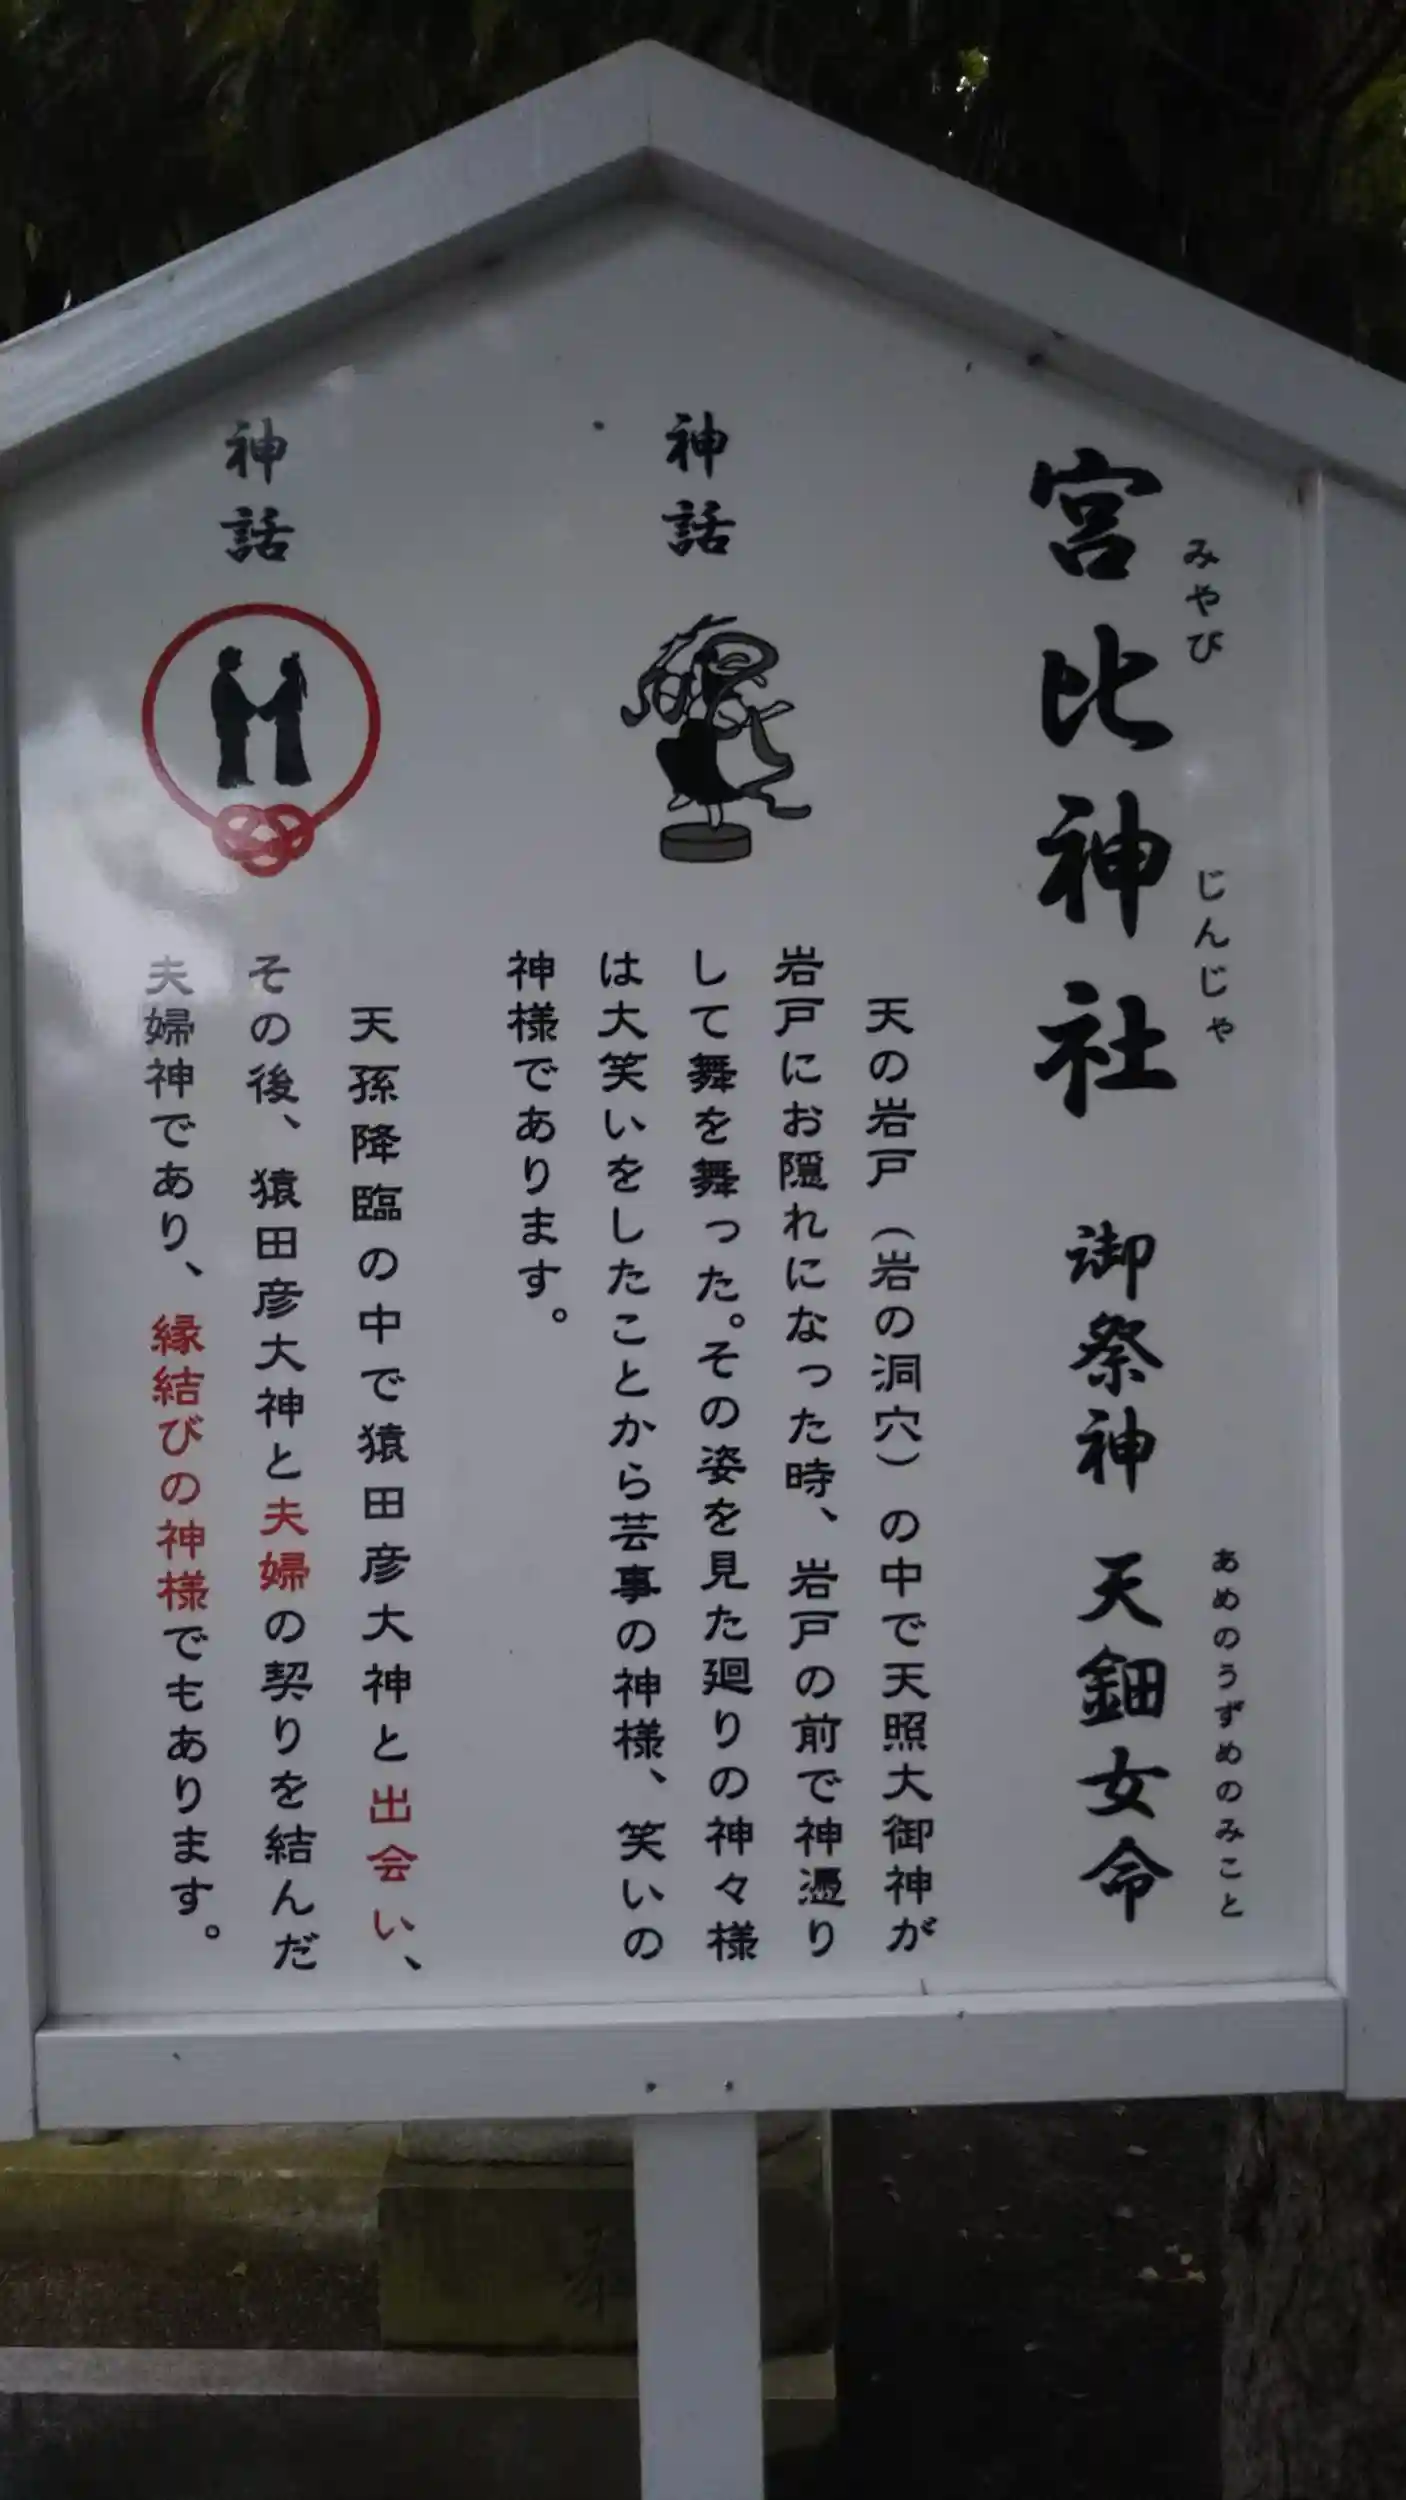 宮比神社 御祭神 天鈿女命
みやび じんじゃ あめのうずめのみこと
神話
天の岩戸（岩の洞穴）の中で天照大御神が
岩戸にお隠れになった時、岩戸の前で神憑り
して舞を舞った。その姿を見た廻りの神々様
は大笑いをしたことから芸事の神様、笑いの
神様であります。
神話
天孫降臨の中で猿田彦大神と出会い、
その後、猿田彦大神と夫婦の契りを結んだ
夫婦神であり、縁結びの神様でもあります。